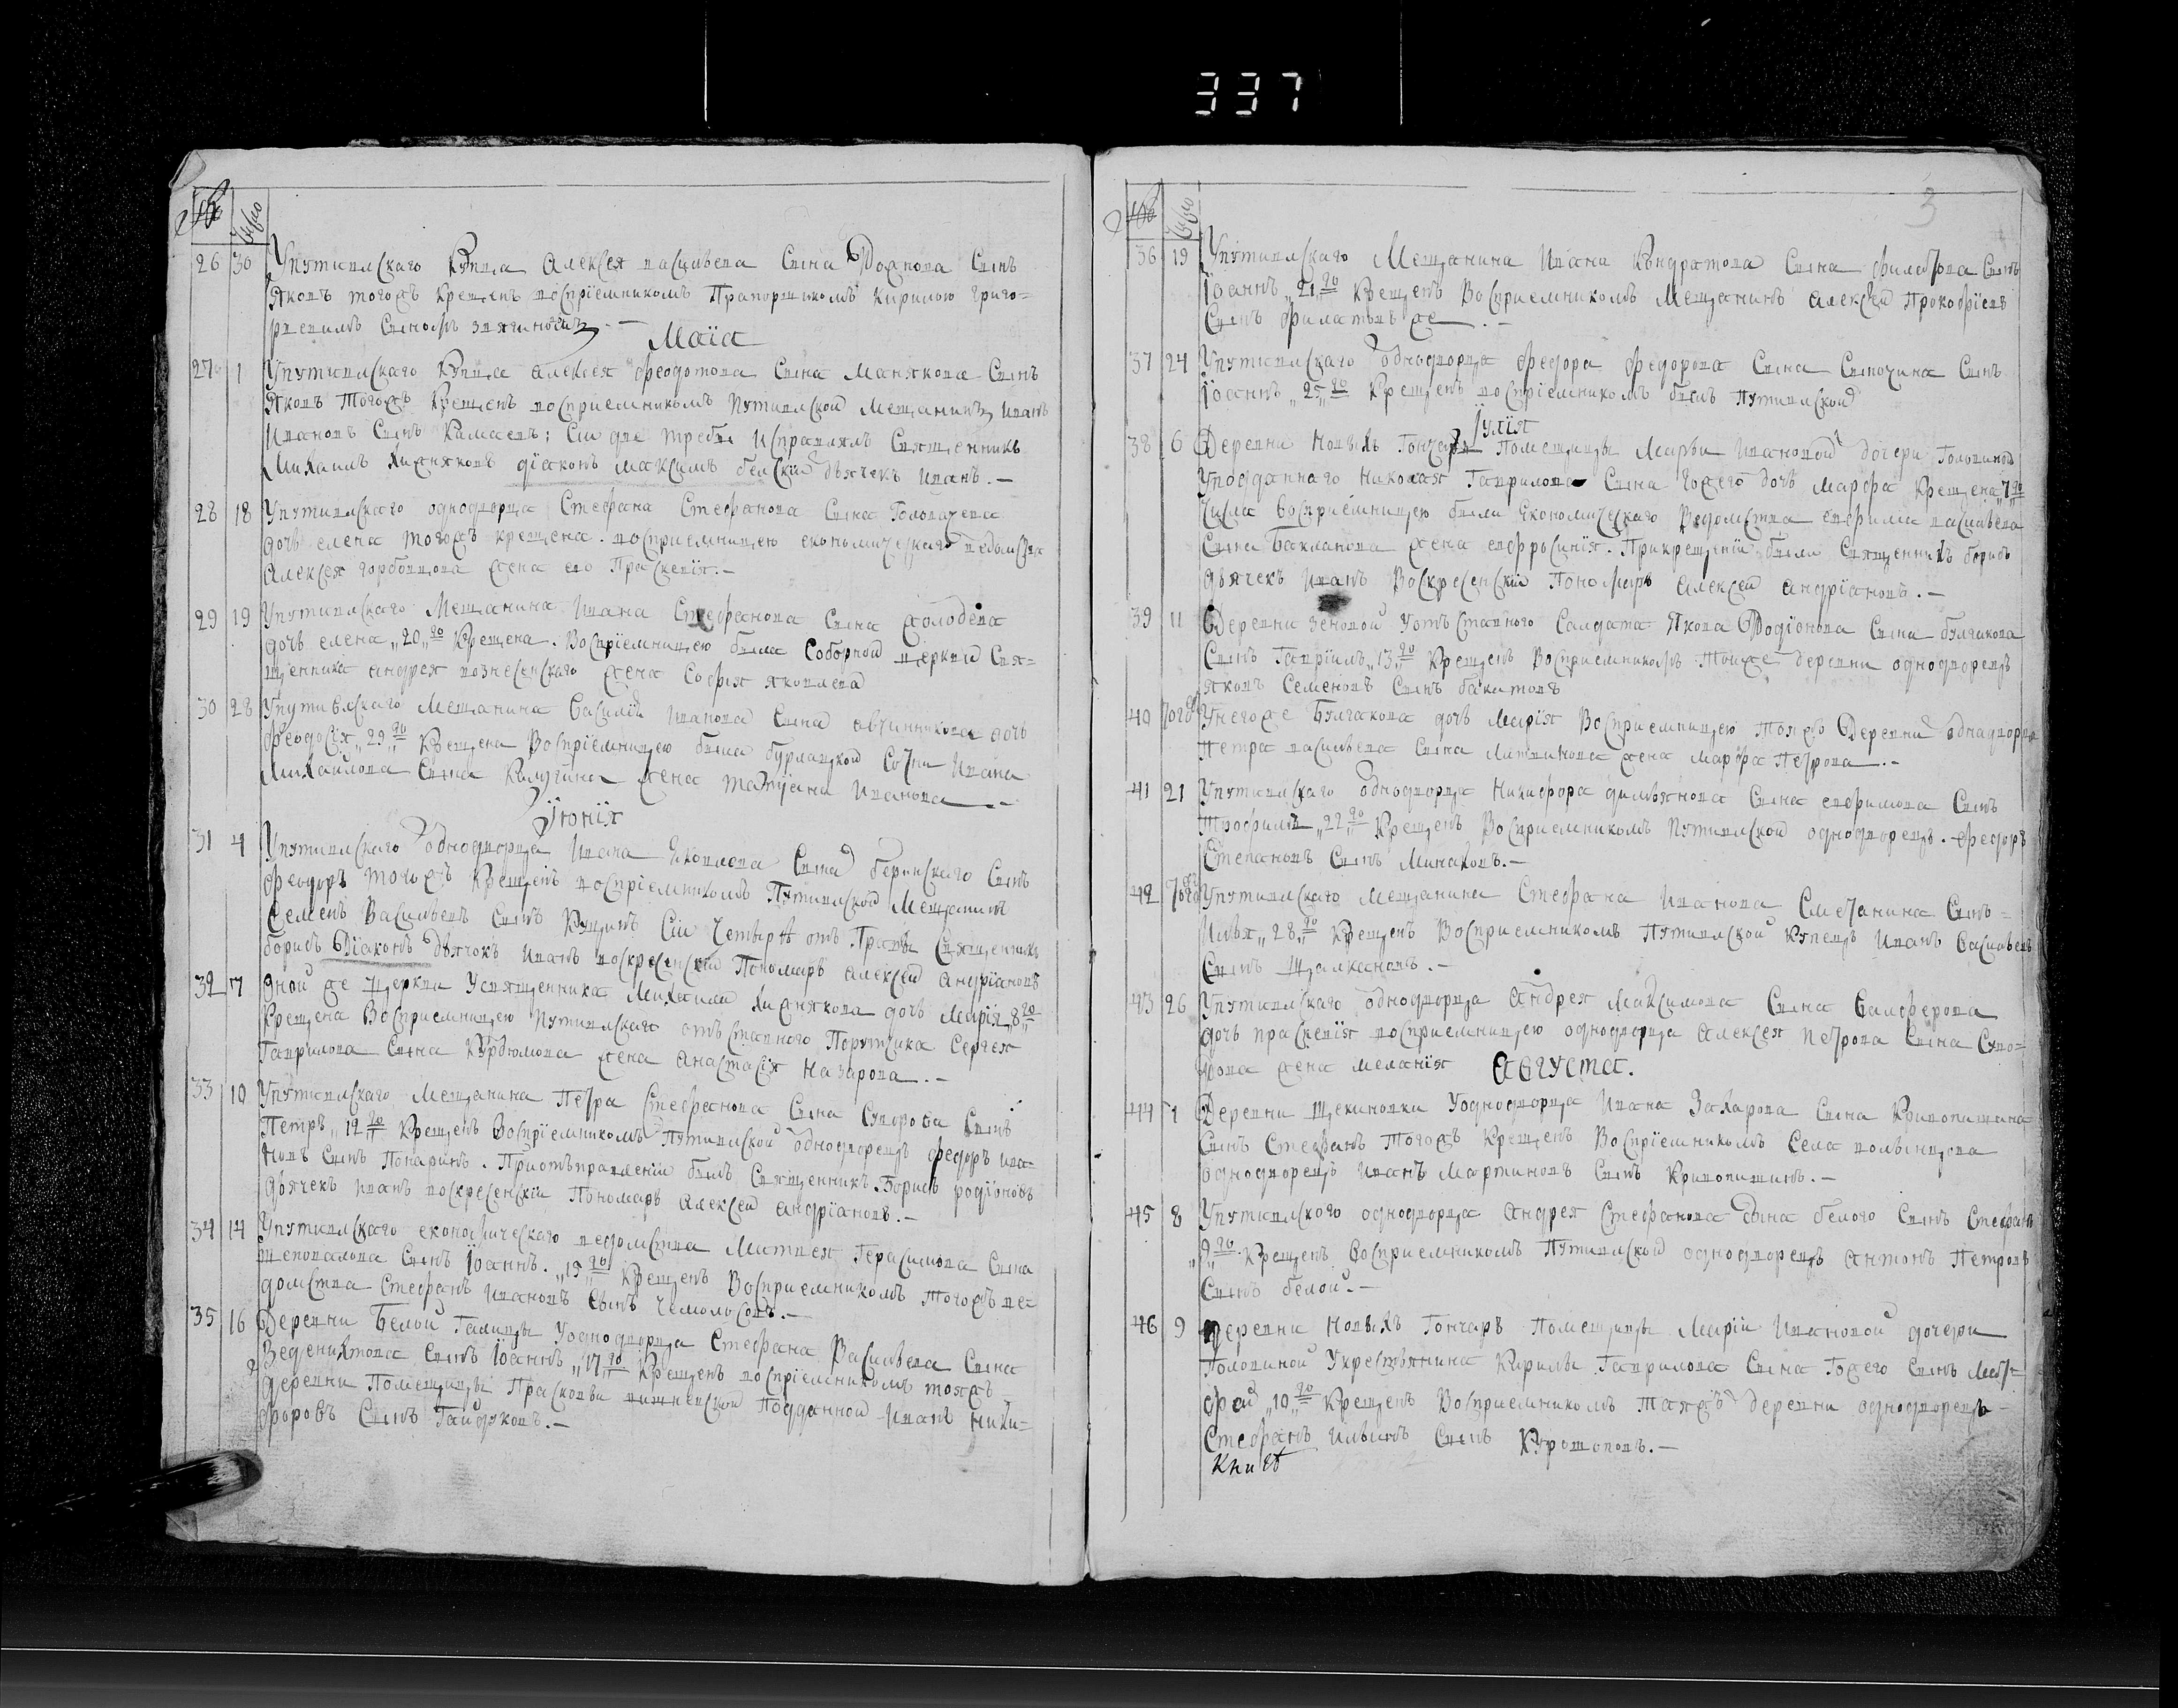 337
число
26 30 Упутивлскаго Купца Алексея василева Сына Сынъ
Яковъ тогожъ Крещенъ воспрїемникомъ Прапорщикомъ Кирилою григо=
рьевимъ Сыномъ
Маїа
27 1 Упутивлскаго Купца алексея феодотова Сына Манякова Сынъ
Яковъ Тогожъ Крещенъ восприемникомъ Путивлской Мещанинъ иванъ
Ивановъ Сынъ Камаевъ; Сии две требы исправлялъ Священникъ
Михаилъ Хижняковъ дїаконъ максимъ белскїй дьячекъ иванъ.—
28 18 Упутивлскаго однодворца Стефана Стефанова Сына Головачева
дочь елена тогожъ крещена. восприемницею економическаго ведомства
Алексея горбовцова жена его Праскевїя.—
29 19 Упутивлскаго Мещанина Ивана Стефанова Сына Холодова
дочь елена „20„го Крещена. Воспрїемницею была Соборной церкви Свя=
щенника андрея вознесенскаго жена Софїя яковлева
30 28 Упутивлскаго Мещанина Василїя Иванова Сына овчинникова дочь
Феодосїя „29„го Крещена Воспрїемницею была бурлацкой Сотни Ивана
Михайлова Сына Калугина жена татїана Иванова
Їюнїя
31 4 Упутивлскаго однодворца Ивана Яковлева Сына беринскаго Сынъ
Феодоръ тогожъ Крещенъ воспрїемникомъ Путивлской Мещанинъ
Семенъ Василевъ Сынъ Сїи четыре отъ Правы Священникъ
борисъ Дїаконъ Дьячокъ Иванъ воскресенскїй Пономаръ алексей Андрїановъ
32 7 Оной же Церкви Усвященника Михаила Хижнякова дочь Марїя „8„го
Крещена Восприемницею Путивлскаго отъставного Порутчика Сергея
Гаврилова Сына Курдюмова жена Анастасїя Назарова.—
33 10 Упутивлскаго Мещанина Петра Стефанова Сына Суворова Сынъ
Петръ „12„го Крещенъ Воспрїемникомъ Путивлской однодворецъ федоръ ива=
новъ Сынъ Понаринъ. Приотъправленїи былъ Священникъ Борисъ родїоновъ
дьячекъ иванъ воскресенскїй Пономаръ Алексей андрїановъ.—
34 14 Упутивлскаго економическаго ведомства Матвея Герасимова Сына
щеповалова Сынъ Їоаннъ. „15„го Крещенъ Восприемникомъ тогожъ ве=
домства Стефанъ Ивановъ Сынъ Чемолосовъ.—
35 16 Деревни Белой Галицы Уоднодворца Стефана Василева Сына
Сынъ Їоаннъ „17„го Крещенъ воспрїемникомъ тояжъ
деревни Помещицы Прасковьи Подданной Иванъ Ники=
форовъ Сынъ Гайдуковъ.—
3
число
36 19 Упутивлскаго Мещанина Ивана Кондратова Сына филатова Сынъ
Їоаннъ „21„го Крещенъ Восприемникомъ Мещанинъ алексей Прокофїевъ
Сынъ филатовъ же.—
37 24 Упутивлскаго однодворца федора федорова Сына Сиючина Сынъ
Їоаннъ „25„го Крещенъ воспрїемникомъ былъ Путивлской
Їулїя
38 6 Деревни Новыхъ Гончаръ Помещицы Марьи Ивановой дочери Головиной
Уподданного Николая Гаврилова Сына Гожего дочь Марфа Крещена „7„го
Числа восприемницею была Економическаго Ведомства евфима василева
Сына Бакланова жена евфросинїя. Прикрещенїи были Священникъ борисъ
дьячекъ Иванъ Воскресенскїй Пономаръ Алексей андрїановъ.—
39 11 Деревни Зеновой Уотъставного Салдата Якова Родїонова Сына булгакова
Сынъ Гаврїилъ „13„го Крещенъ Восприемникомъ Тойже деревни однодворецъ
яковъ Семеновъ Сынъ бакитовъ
40 Тогожъ Унегоже Булгакова дочь Марїя Восприемницею Тояжъ Деревни однадворца
Петра василева Сына Литвинова жена марфа Петрова.—
41 21 Упутивлскаго однодворца Никифора Сына евфимова Сынъ
Трофимъ „22„го Крещенъ Восприемникомъ Путивлской однодворецъ. федоръ
Степановъ Сынъ Минаковъ.—
42 Упутивлскаго мещанина Стефана Иванова Сметанина Сынъ
Илья „28„го Крещенъ Восприемникомъ Путивлской Купецъ Иванъ Василевъ
Сынъ Щалкановъ.—
43 26 Упутивлскаго однодворца Андрея Максимова Сына Балферова
дочь праскевїя восприемницею однодворца Алексея Петрова Сына Суво=
рова жена меланїя Августа.
44 1 Деревни Щекиновки Уоднодворца Ивана Захарова Сына Кривопишина
Сынъ Стефанъ Тогожъ Крещенъ Воспрїемникомъ Села волынцова
однодворецъ Иванъ Мартиновъ Сынъ Кривопишинъ.—
45 8 Упутивлского однодворца Андрея Стефанова Сына белого Сынъ Стефанъ
„9„го Крещенъ восприемникомъ Путивлской однодворецъ антонъ Петровъ
Сынъ белой.—
46 9 деревни Новыхъ Гончаръ Помещицы Марїи Ивановой дочери
Головиной Укрестьянина Кирилы Гаврилова Сына Гожего Сынъ Мат=
фей „10„го Крещенъ Восприемникомъ Таяжъ деревни однодворецъ
Стефанъ Ильинъ Сынъ Курошоповъ.—